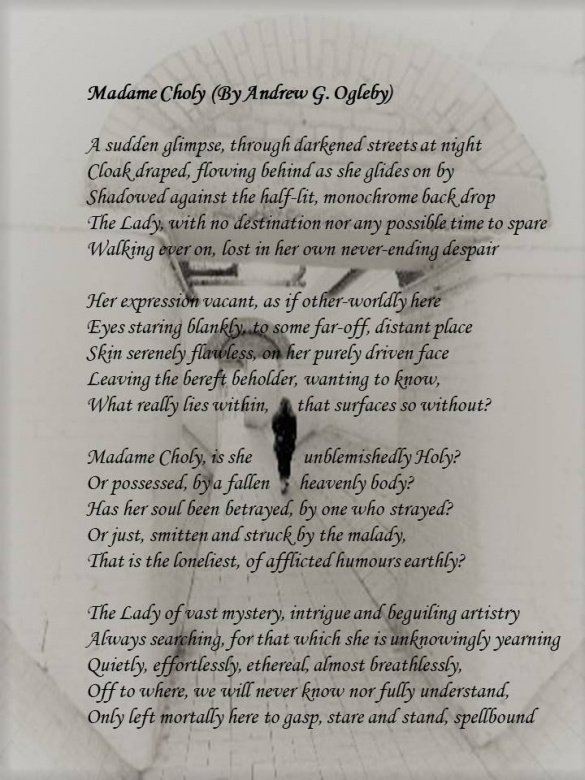 Madame Choly (By Andrew G. Ogleby)
A sudden glimpse, through darkened streets at night
Cloak draped, flowing behind as she glides on by
Shadowed against the half-lit, monochrome back drop
The Lady, with no destination nor any possible time to spare
Walking ever on, lost in her own never-ending despair
Her expression vacant, as if other-worldly here
Eyes staring blankly, to some far-off, distant place
Skin serenely flawless, on her purely driven face
Leaving the bereft beholder, wanting to know,
What really lies within, that surfaces so without?
Madame Choly, is she unblemishedly Holy?
Or possessed, by a fallen heavenly body?
Has her soul been betrayed, by one who strayed?
Or just, smitten and struck by the malady,
That is the loneliest, of afflicted humours earthly?
The Lady of vast mystery, intrigue and beguiling artistry
Always searching, for that which she is unknowingly yearning
Quietly, effortlessly, ethereal, almost breathlessly,
Off to where, we will never know nor fully understand,
Only left mortally here to gasp, stare and stand, spellbound